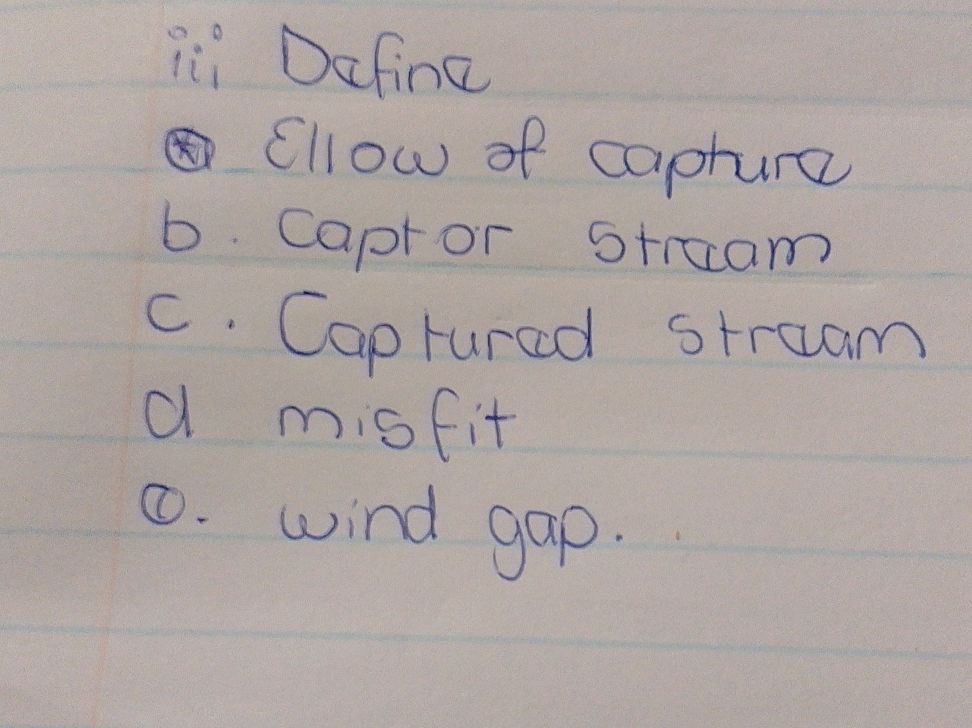 iii Define
a Ellow of capture
b. Captor stream
c. Captured stream
d misfit
e. wind gap.